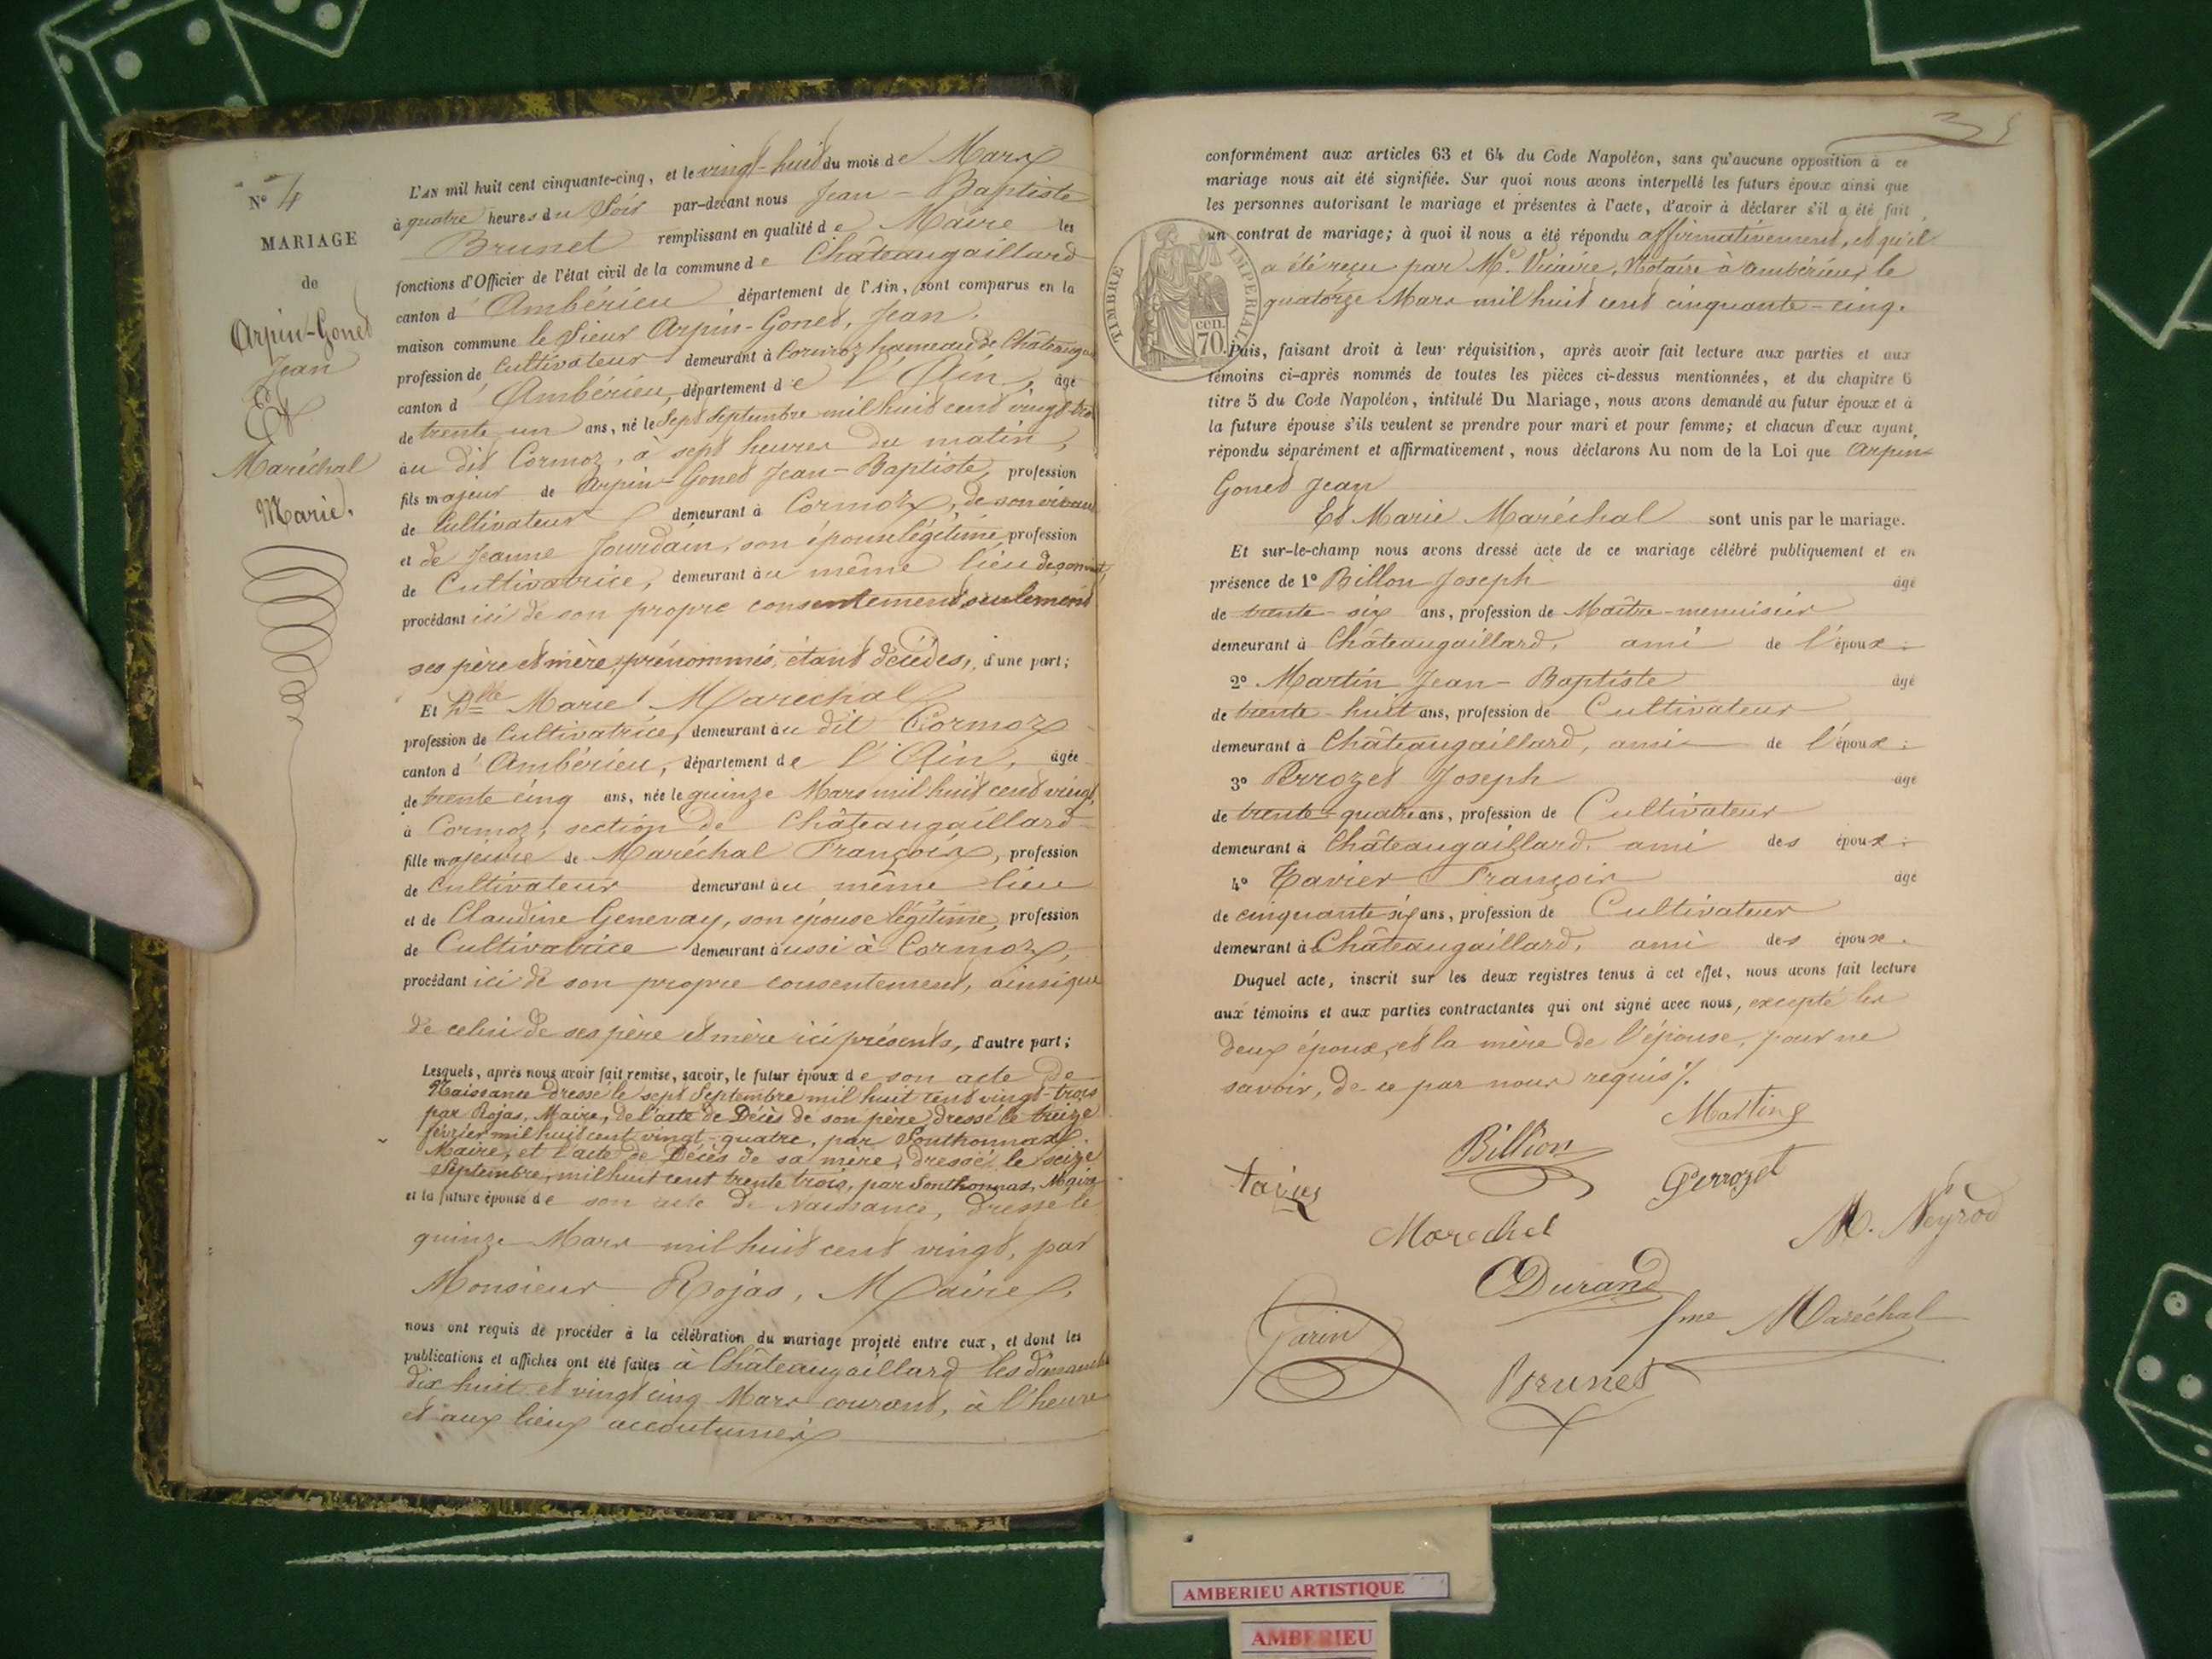 N° 4
MARIAGE
de
Arpin-Gonet
Jean
Et
Maréchal
Marie.
L'AN mil huit cent cinquante-cinq, et le vingt-huit du mois de Mars
à quatre heures du Soir par-devant nous Jean-Baptiste
Brunet remplissant en qualité de Maire les
fonctions d'Officier de l'état civil de la commune de Châteaugaillard
canton d'Ambérieu département de l'Ain, sont comparus en la
maison commune le Sieur Arpin-Gonet, Jean,
profession de Cultivateur demeurant à Cormoz hameau de Châteaugai
canton d'Ambérieu, département de l'Ain, âgé
de trente un ans, né le Sept Septembre mil huit cent vingt-trois
au dit Cormoz, à sept heures du matin,
fils majeur de Arpin-Gonet Jean-Baptiste, profession
de Cultivateur demeurant à Cormoz, de son vivant
et de Jeanne Jourdain, son épouse légitime, profession
de Cultivatrice, demeurant au même lieu de son vivant,
procédant ici de son propre consentement seulement
ses père et mère, prénommés, étant décédés, d'une part;
Et Dlle Marie Maréchal
profession de Cultivatrice, demeurant au dit Cormoz
canton d'Ambérieu, département de l'Ain, âgée
de trente cinq ans, née le quinze Mars mil huit cent vingt,
à Cormoz, section de Châteaugaillard
fille majeure de Maréchal François, profession
de Cultivateur demeurant au même lieu
et de Claudine Genevay, son épouse légitime, profession
de Cultivatrice demeurant aussi à Cormoz,
procédant ici de son propre consentement, ainsi que
de celui de ses père et mère ici présents, d'autre part;
Lesquels, après nous avoir fait remise, savoir, le futur époux de son acte de
Naissance dressé le sept Septembre mil huit cent vingt-trois
par Rojas, Maire, de l'acte de Décès de son père, dressé le treize
février mil huit cent vingt-quatre, par Sonthonnax
Maire, et l'acte de Décès de sa mère, dressé le seize
Septembre, mil huit cent trente trois, par Sonthonnax, Maire
et la future épouse de son acte de Naissance, dressé le
quinze Mars mil huit cent vingt, par
Monsieur Rojas, Maire,
nous ont requis de procéder à la célébration du mariage projeté entre eux, et dont les
publications et affiches ont été faites à Châteaugaillard les dimanches
dix huit et vingt cinq Mars courant, à l'heure
et aux lieux accoutumés
conformément aux articles 63 et 64 du Code Napoléon, sans qu'aucune opposition à ce
mariage nous ait été signifiée. Sur quoi nous avons interpellé les futurs époux ainsi que
les personnes autorisant le mariage et présentes à l'acte, d'avoir à déclarer s'il a été fait
un contrat de mariage; à quoi il nous a été répondu affirmativement, et qu'il
a été reçu par Me Vicaire, Notaire à Ambérieu, le
quatorze Mars mil huit cent cinquante-cinq.
TIMBRE IMPERIAL
70. cen.
Puis, faisant droit à leur réquisition, après avoir fait lecture aux parties et aux
témoins ci-après nommés de toutes les pièces ci-dessus mentionnées, et du chapitre 6
titre 5 du Code Napoléon, intitulé Du Mariage, nous avons demandé au futur époux et à
la future épouse s'ils veulent se prendre pour mari et pour femme; et chacun d'eux ayant
répondu séparément et affirmativement, nous déclarons Au nom de la Loi que Arpin
Gonet Jean
Et Marie Maréchal sont unis par le mariage.
Et sur-le-champ nous avons dressé acte de ce mariage célébré publiquement et en
présence de 1° Billon Joseph âgé
de trente-six ans, profession de Maître-menuisier
demeurant à Châteaugaillard, ami de l'époux:
2° Martin Jean-Baptiste âgé
de trente-huit ans, profession de Cultivateur
demeurant à Châteaugaillard, ami de l'époux:
3° Perrozet Joseph âgé
de trente-quatre ans, profession de Cultivateur
demeurant à Châteaugaillard, ami des époux:
4° Tavier François âgé
de cinquante six ans, profession de Cultivateur
demeurant à Châteaugaillard, ami des époux.
Duquel acte, inscrit sur les deux registres tenus à cet effet, nous avons fait lecture
aux témoins et aux parties contractantes qui ont signé avec nous, excepté les
deux époux, et la mère de l'épouse, pour ne
savoir, de ce par nous requis /.
Martin
Billion
Tavier
Perrozet
Marechal
M. Neyrod
Durand
fme Maréchal
Garin
Brunet
AMBERIEU ARTISTIQUE
AMBERIEU